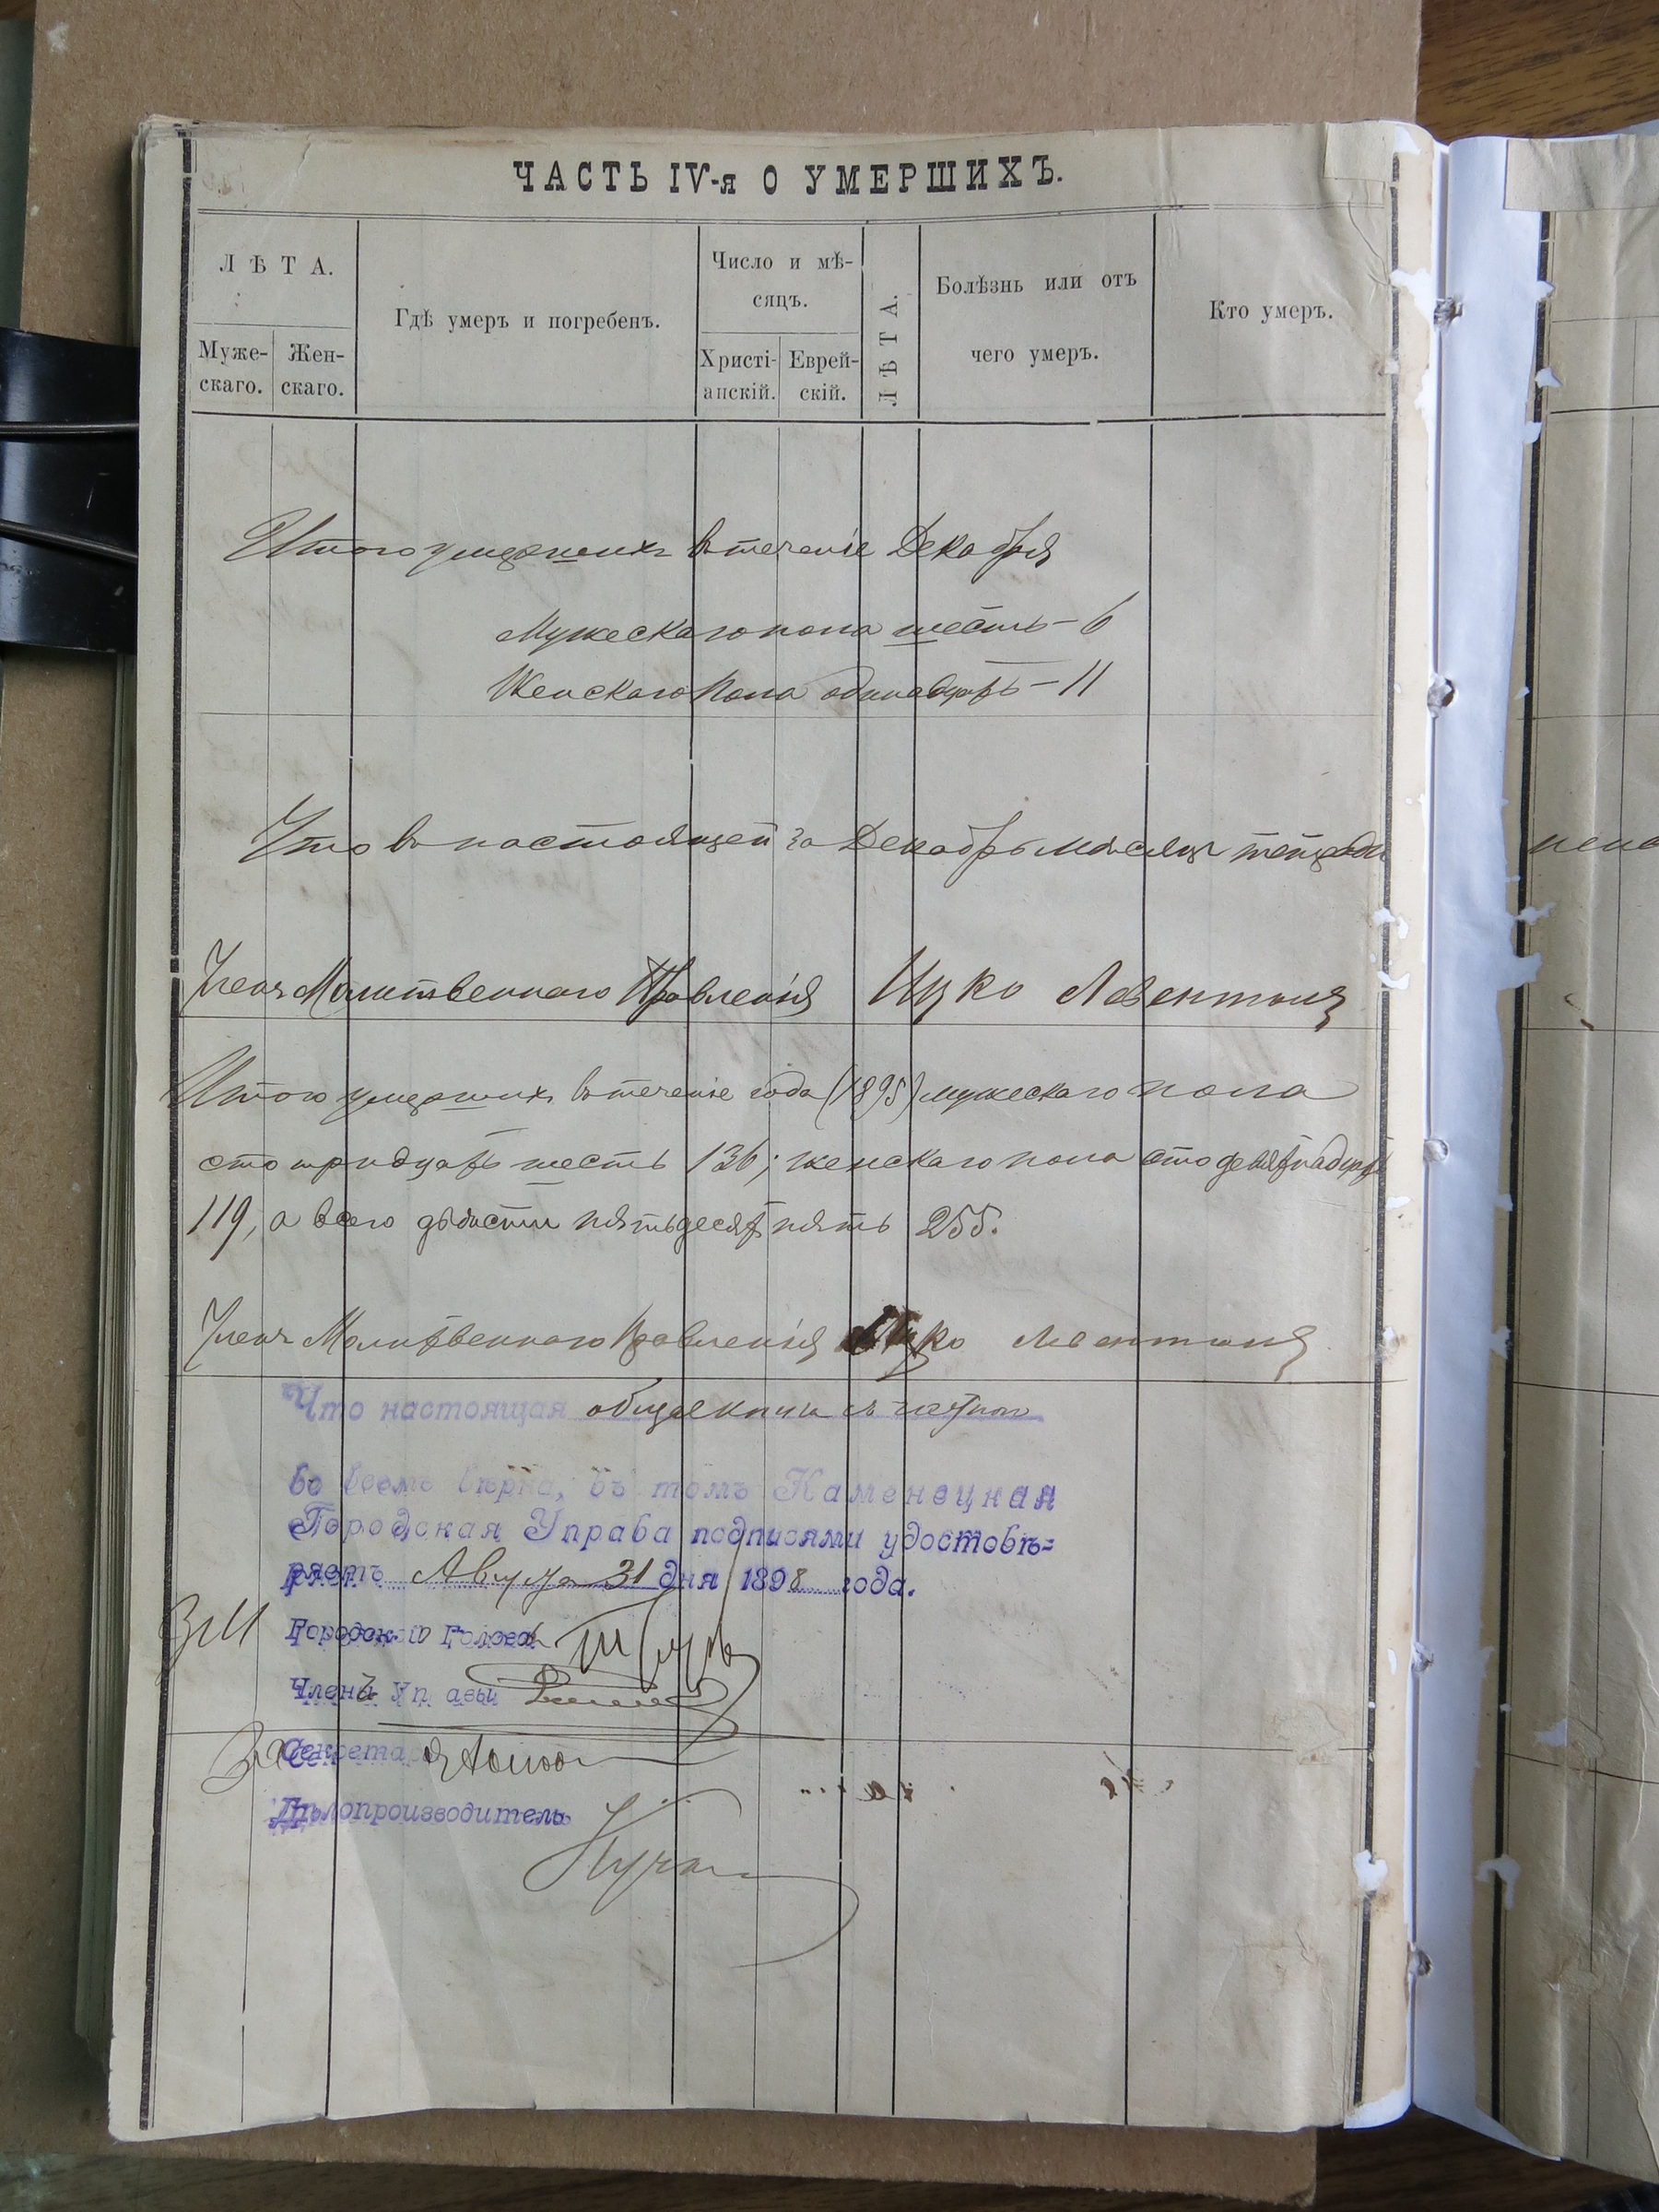 ЧАСТЬ IV-я О УМЕРШИХЪ.
ЛѢТА.
Мужескаго.
Женскаго.
Гдѣ умеръ и погребенъ.
Число и мѣ-
сяцъ.
Христі-
анскій.
Еврей-
скій.
ЛѢТА.
Болѣзнь или отъ
чего умеръ.
Кто умеръ.
Итого умершихъ въ теченіе Декабря
Мужескаго пола шесть – 6
Женскаго Пола одинадцать – 11
Что въ настоящей за Декабрь мѣсяцъ тетради
Членъ Молитвеннаго Правленія Ицко Левентоля
Итого умершихъ въ теченіе года (1895) мужескаго пола
сто тридцать шесть 136; женскаго пола сто девятнадцать
119, а всего двѣсти пятьдесятъ пять 255.
Членъ Молитвеннаго Правленія Ицко Левентоля
Что настоящая общая книга съ
во всемъ вѣрна, въ томъ Каменецкая
Городская Управа подписями удостовѣ=
ряетъ Августа 31 дня 1898 года.
Городского Голова
Членъ Управы
Секретаря
Дѣлопроизводитель